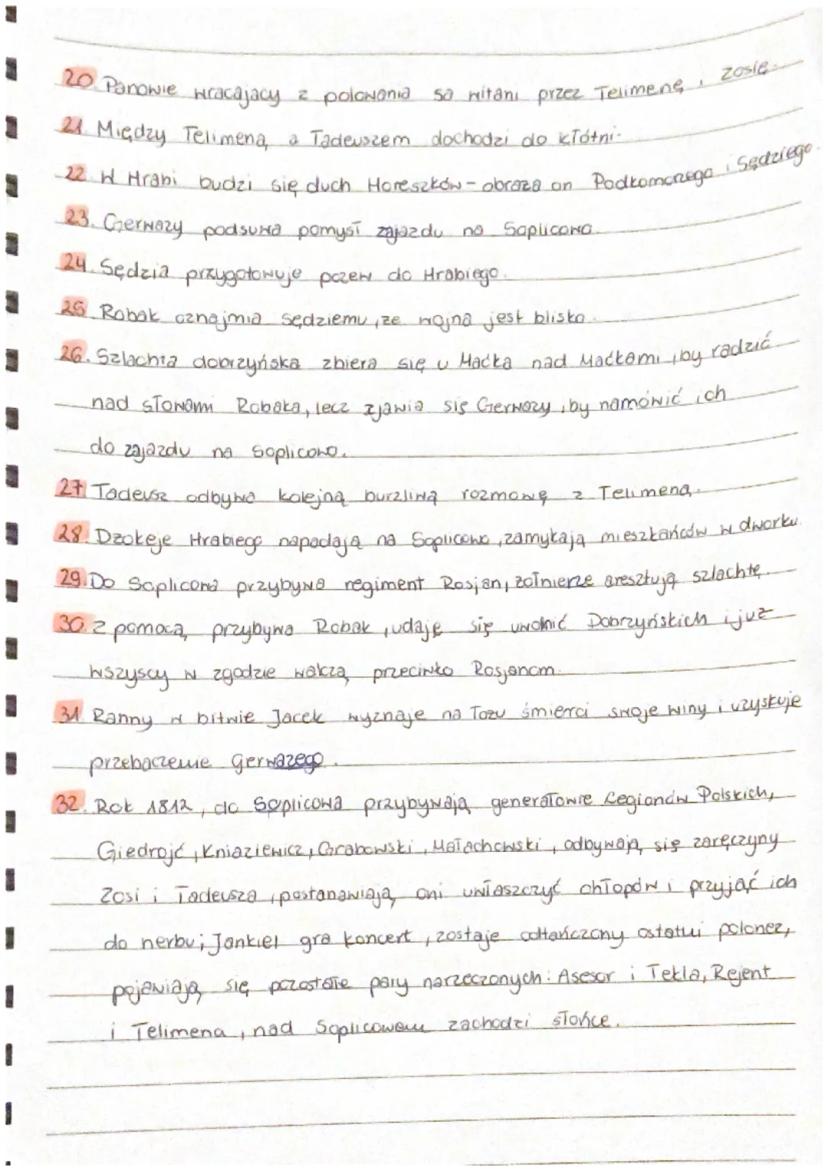 20 Panowie wracający z polowania są witani przez Telimenę i Zosię.
21. Między Telimeną a Tadeuszem dochodzi do kłótni.
22. W Hrabi budzi się duch Horeszków - obraża on Podkomorzego i Sędziego.
23. Gerwazy podsuwa pomysł zajazdu na Soplicowo.
24. Sędzia przygotowuje pozew do Hrabiego.
25 Robak oznajmia sędziemu, że wojna jest blisko.
26. Szlachta dobrzyńska zbiera się u Maćka nad Maćkami, by radzić
nad słowami Robaka, lecz zjawia się Gerwazy, by namówić ich
do zajazdu na Soplicowo.
27 Tadeusz odbywa kolejną burzliwą rozmowę z Telimeną.
28. Dżokeje Hrabiego napadają na Soplicowo, zamykają mieszkańców w dworku.
29. Do Soplicowa przybywa regiment Rosjan, żołnierze aresztują szlachtę.
30. Z pomocą przybywa Robak, udaje się uwolnić Dobrzyńskich i już
wszyscy w zgodzie walczą przeciwko Rosjanom.
31 Ranny w bitwie Jacek wyznaje na łożu śmierci swoje winy i uzyskuje
przebaczenie Gerwazego.
32. Rok 1812, do Soplicowa przybywają generałowie Legionów Polskich,
Giedrojć, Kniaziewicz, Grabowski, Małachowski, odbywają się zaręczyny
Zosi i Tadeusza, postanawiają oni uwłaszczyć chłopów i przyjąć ich
do herbu; Jankiel gra koncert, zostaje odtańczony ostatni polonez,
pojawiają się pozostałe pary narzeczonych: Asesor i Tekla, Rejent
i Telimena, nad Soplicowem zachodzi słońce.